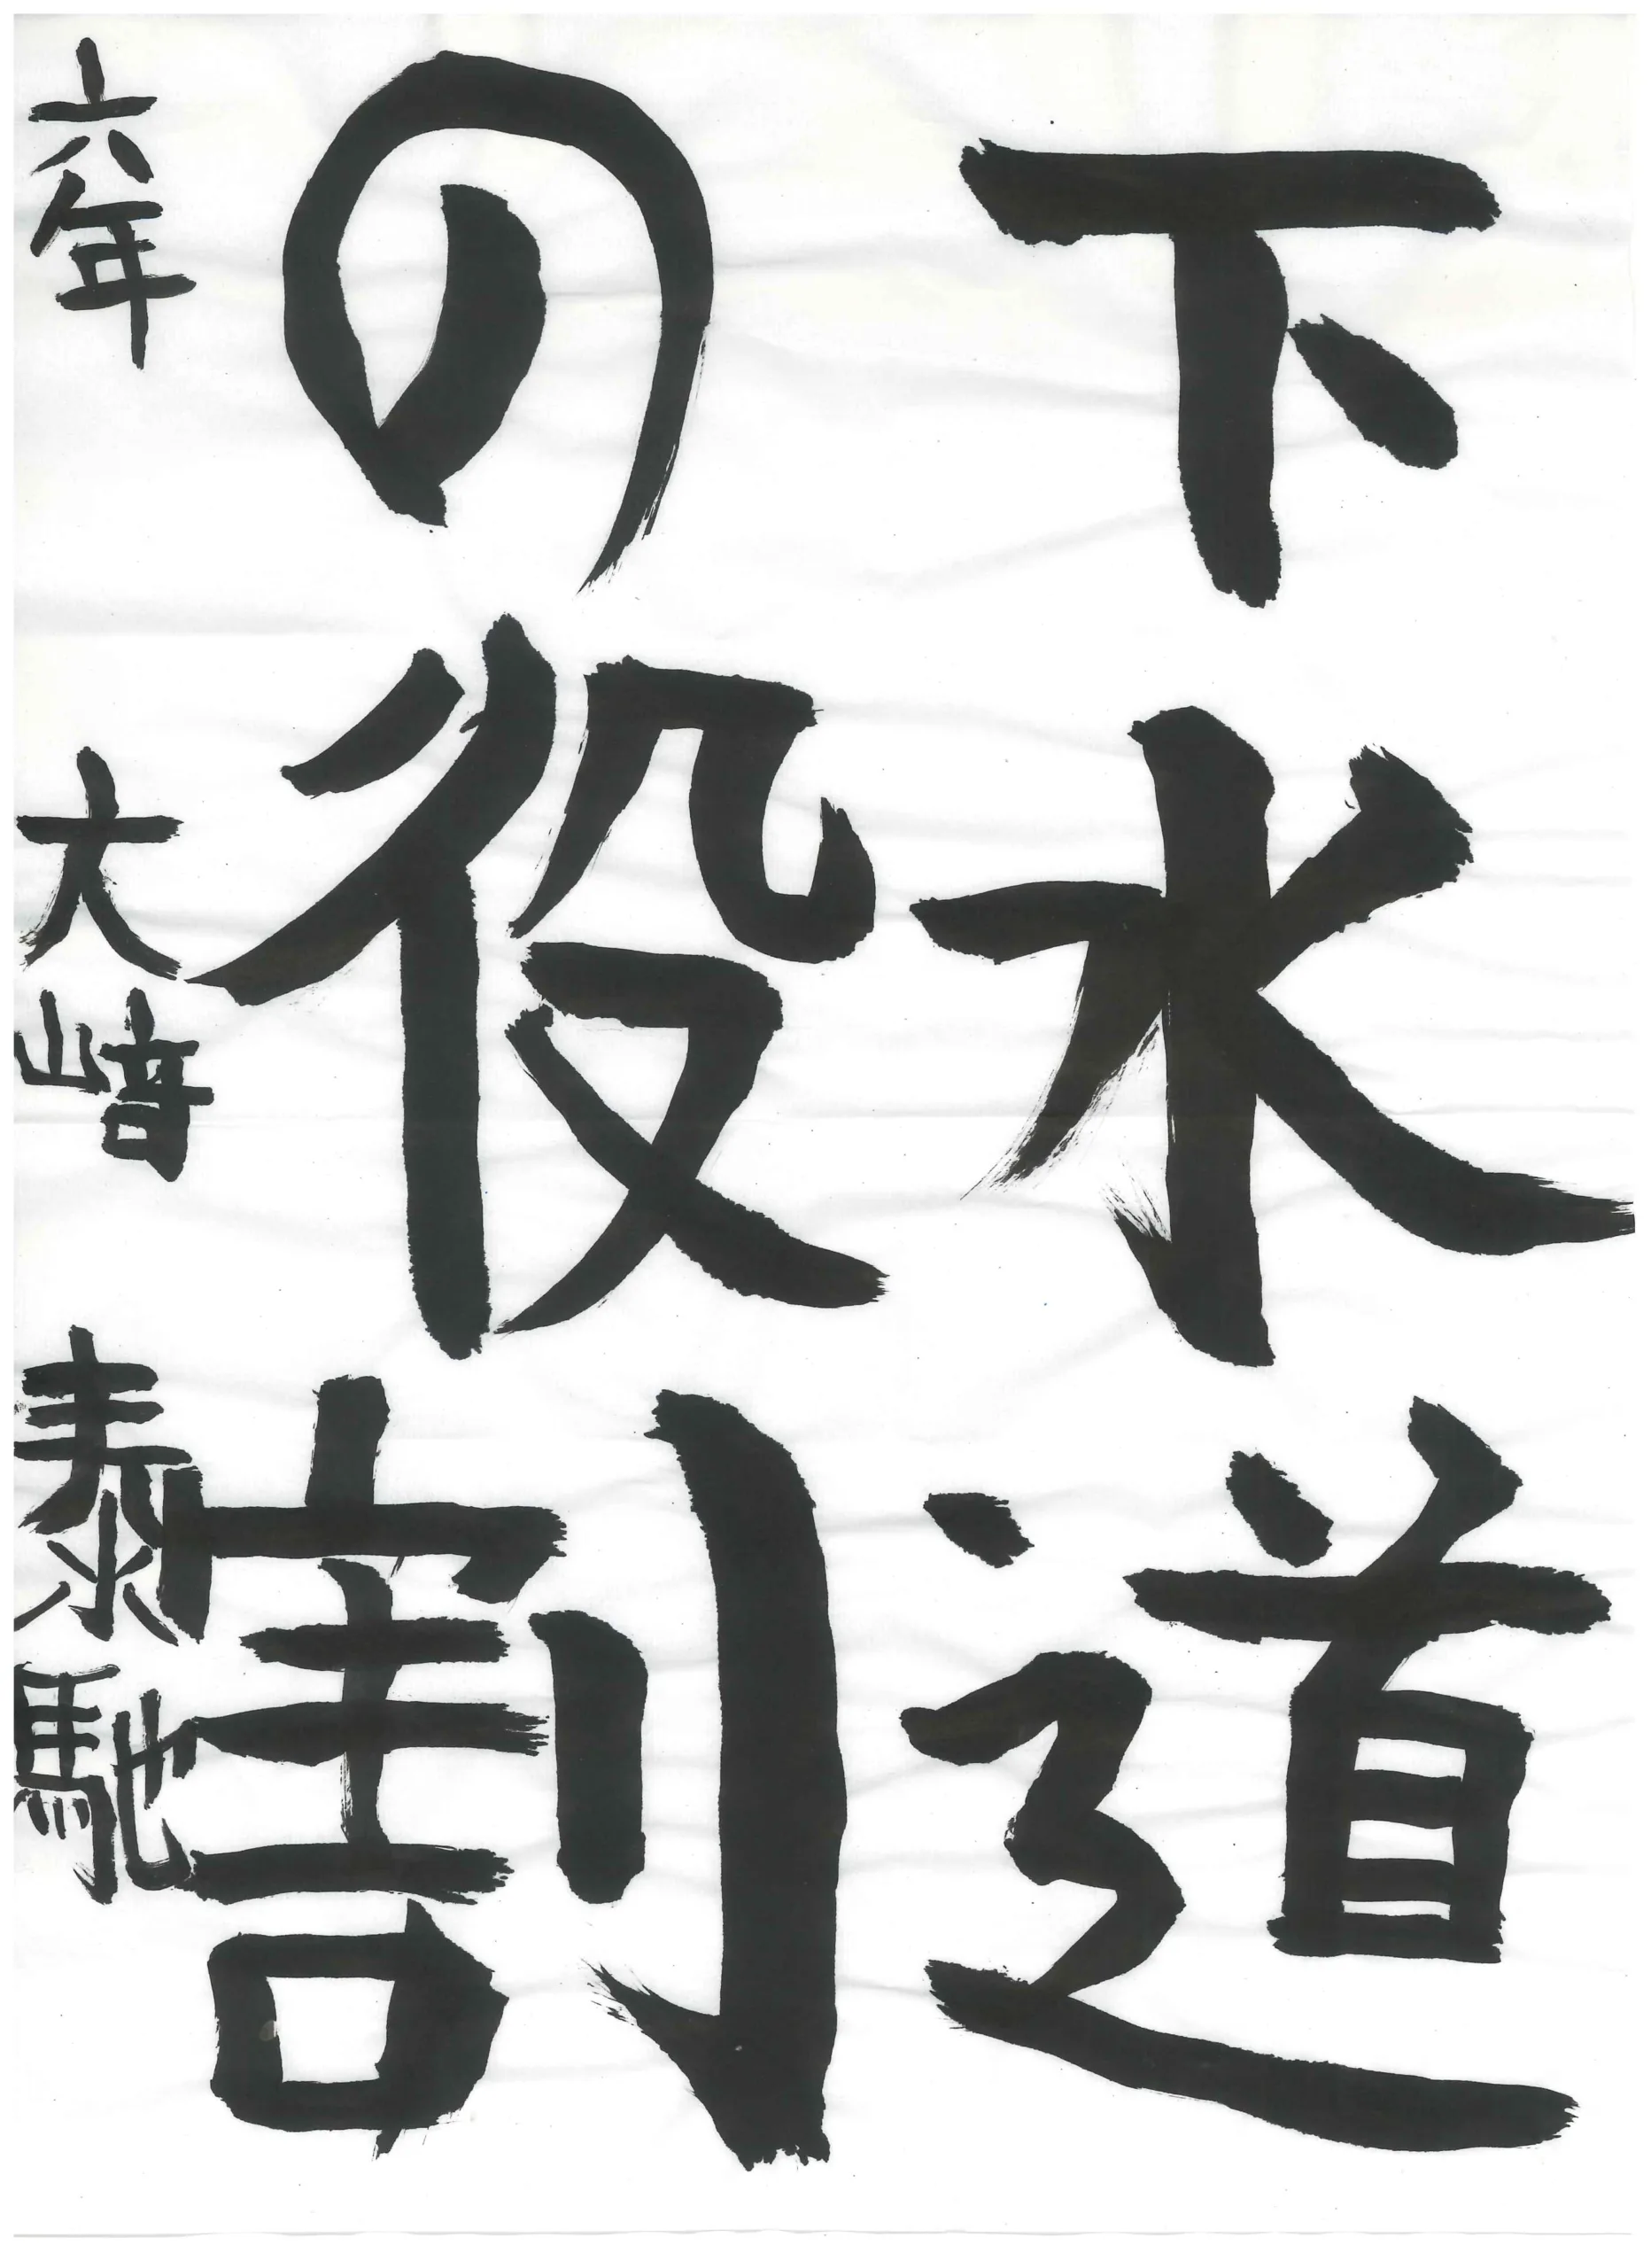 下水道
の役割
六年 大﨑 泰馳